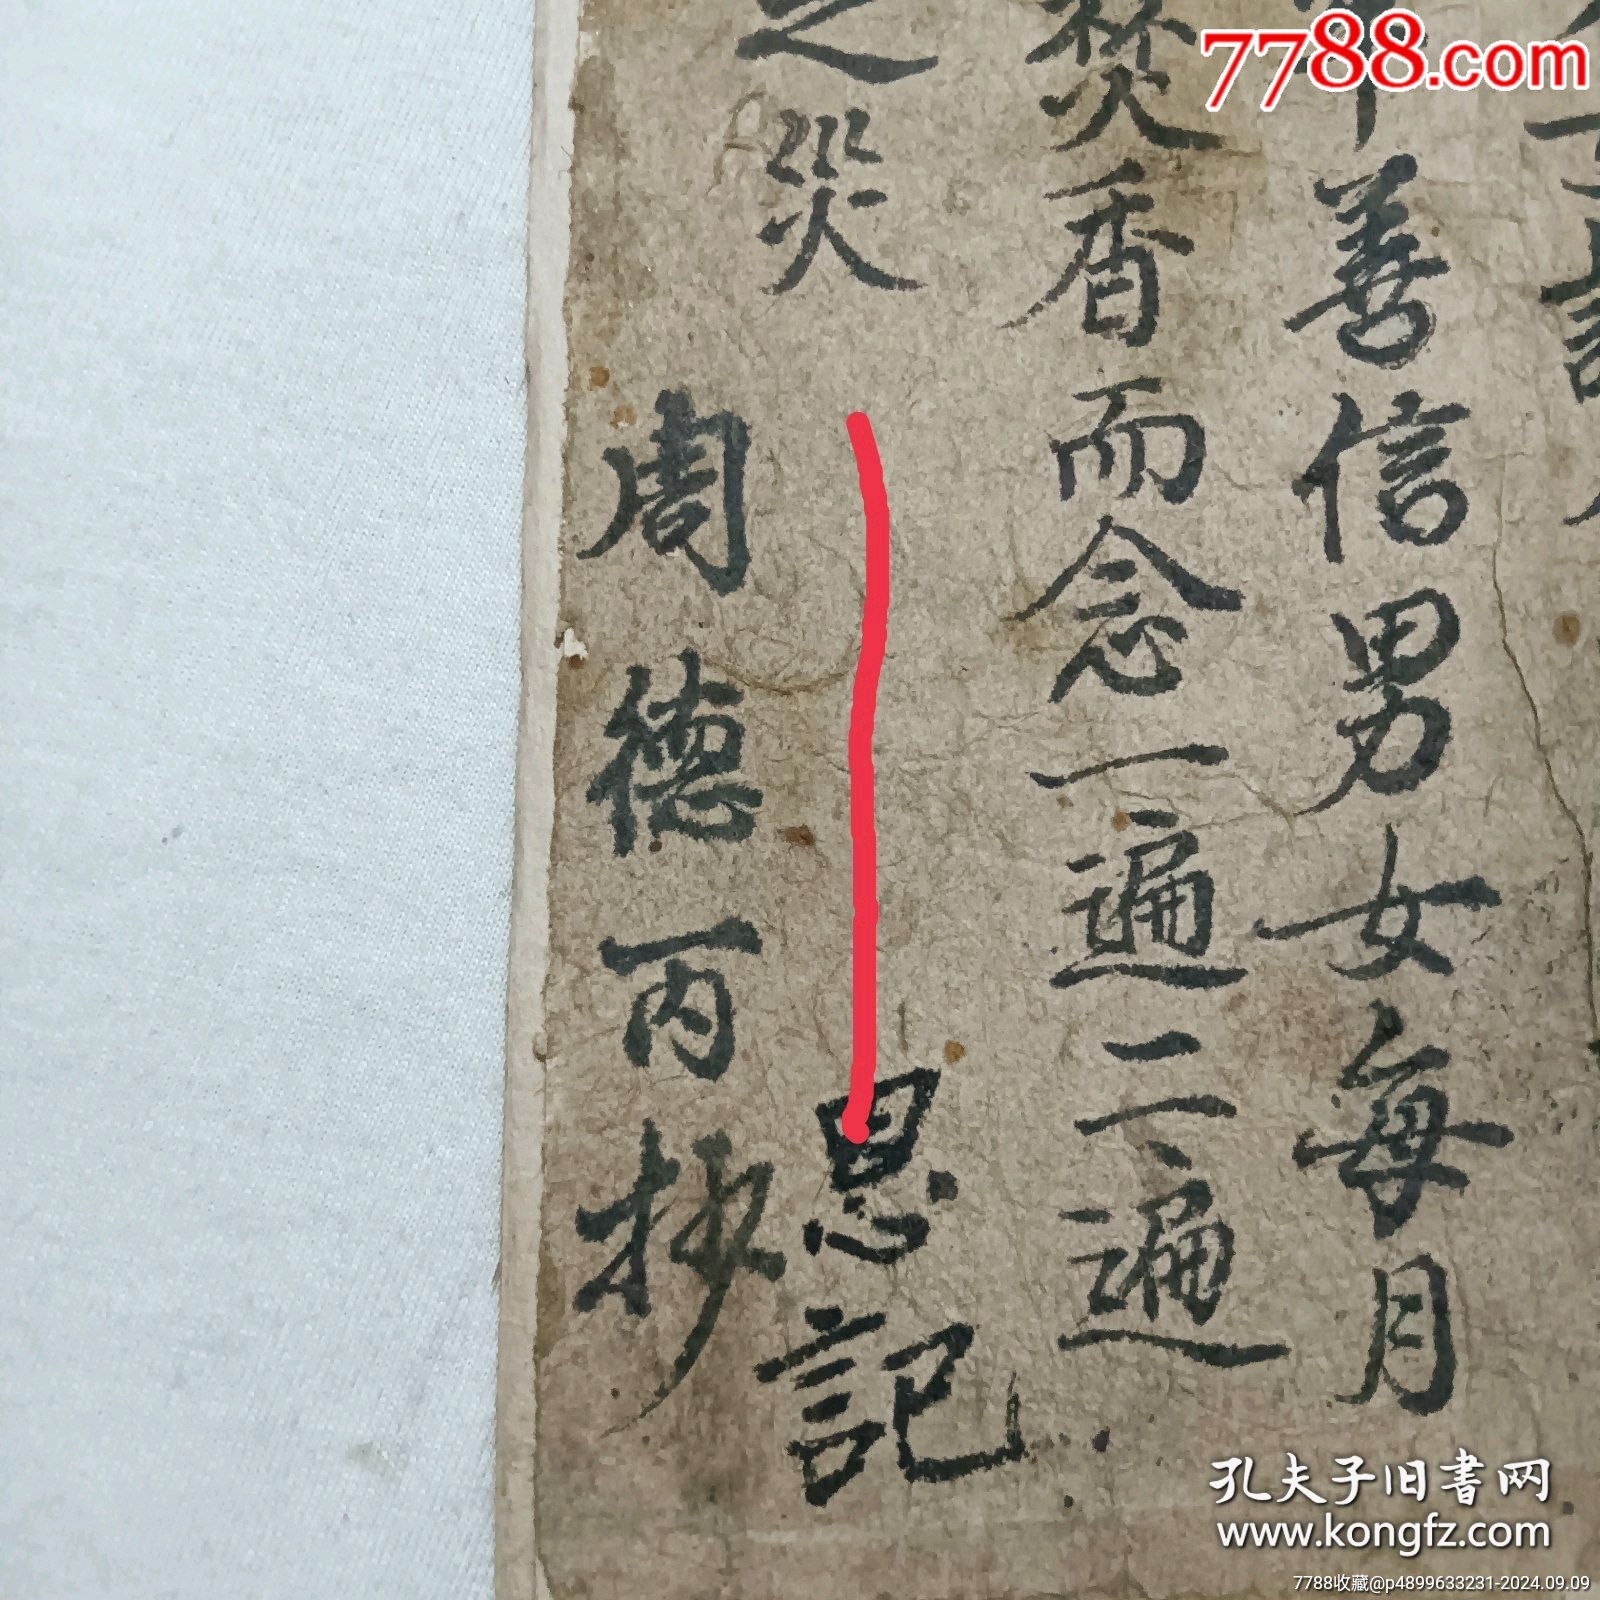 善信男女每月
焚香而念一遍二遍
之災
思記
周德丙抄
7788.com
孔夫子旧書网
www.kongfz.com
7788收藏@p4899633231-2024.09.09